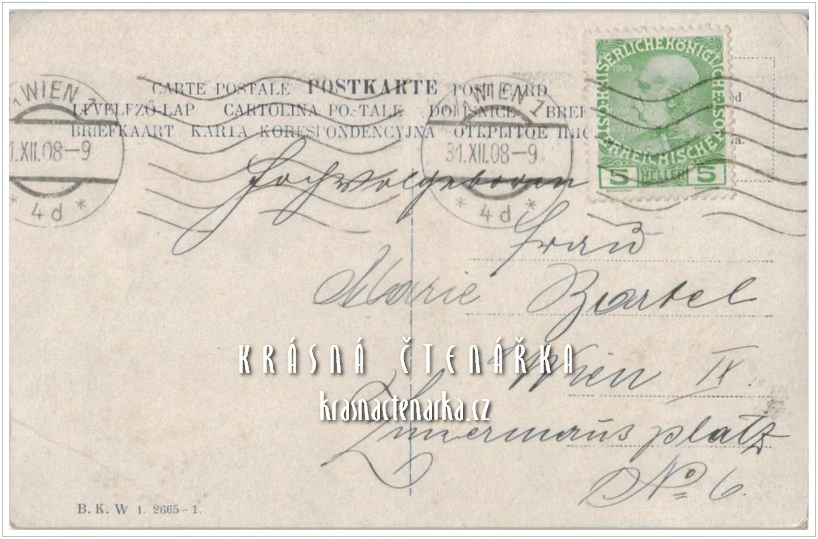 CARTE POSTALE POSTKARTE POST CARD
LEVELEZŐ-LAP CARTOLINA POSTALE DOPISNICE
BRIEFKAART KARTA KORESPONDENCYJNA
1 WIEN 1
31.XII.08-9
* 4d *
WIEN 1
31.XII.08-9
* 4d *
KAISERLICHE KÖNIGLICHE ÖSTERREICHISCHE POST
1908
5 HELLER 5
Hochwolgeboren
Frau
Marie Bartel
Wien IX.
Zimermansplatz
No 6.
KRÁSNÁ ČTENÁŘKA
krasnactenarka.cz
B. K. W 1. 2665-1.